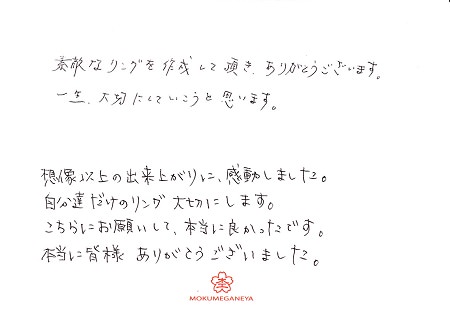 素敵なリングを作成して頂き、ありがとうございます。
一生、大切にしていこうと思います。
想像以上の出来上がりに、感動しました。
自分達だけのリング大切にします。
こちらにお願いして、本当に良かったです。
本当に皆様 ありがとうございました。
MOKUMEGANEYA